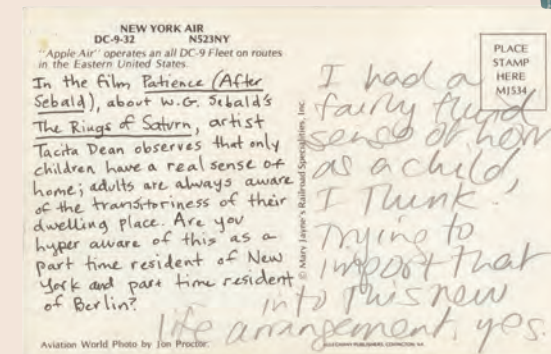 NEW YORK AIR
DC-9-32 N523NY
"Apple Air" operates an all DC-9 Fleet on routes
in the Eastern United States.
In the film Patience (After
Sebald), about W.G. Sebald's
The Rings of Saturn, artist
Tacita Dean observes that only
children have a real sense of
home; adults are always aware
of the transitoriness of their
dwelling place. Are you
hyper aware of this as a
part time resident of New
York and part time resident
of Berlin?
Aviation World Photo by Jon Proctor.
© Mary Jayne's Railroad Specialties, Inc.
PLACE
STAMP
HERE
MJ534
I had a
fairly
sense of
as a child,
I think!
Trying to
import that
into this new
life arrangement, yes.